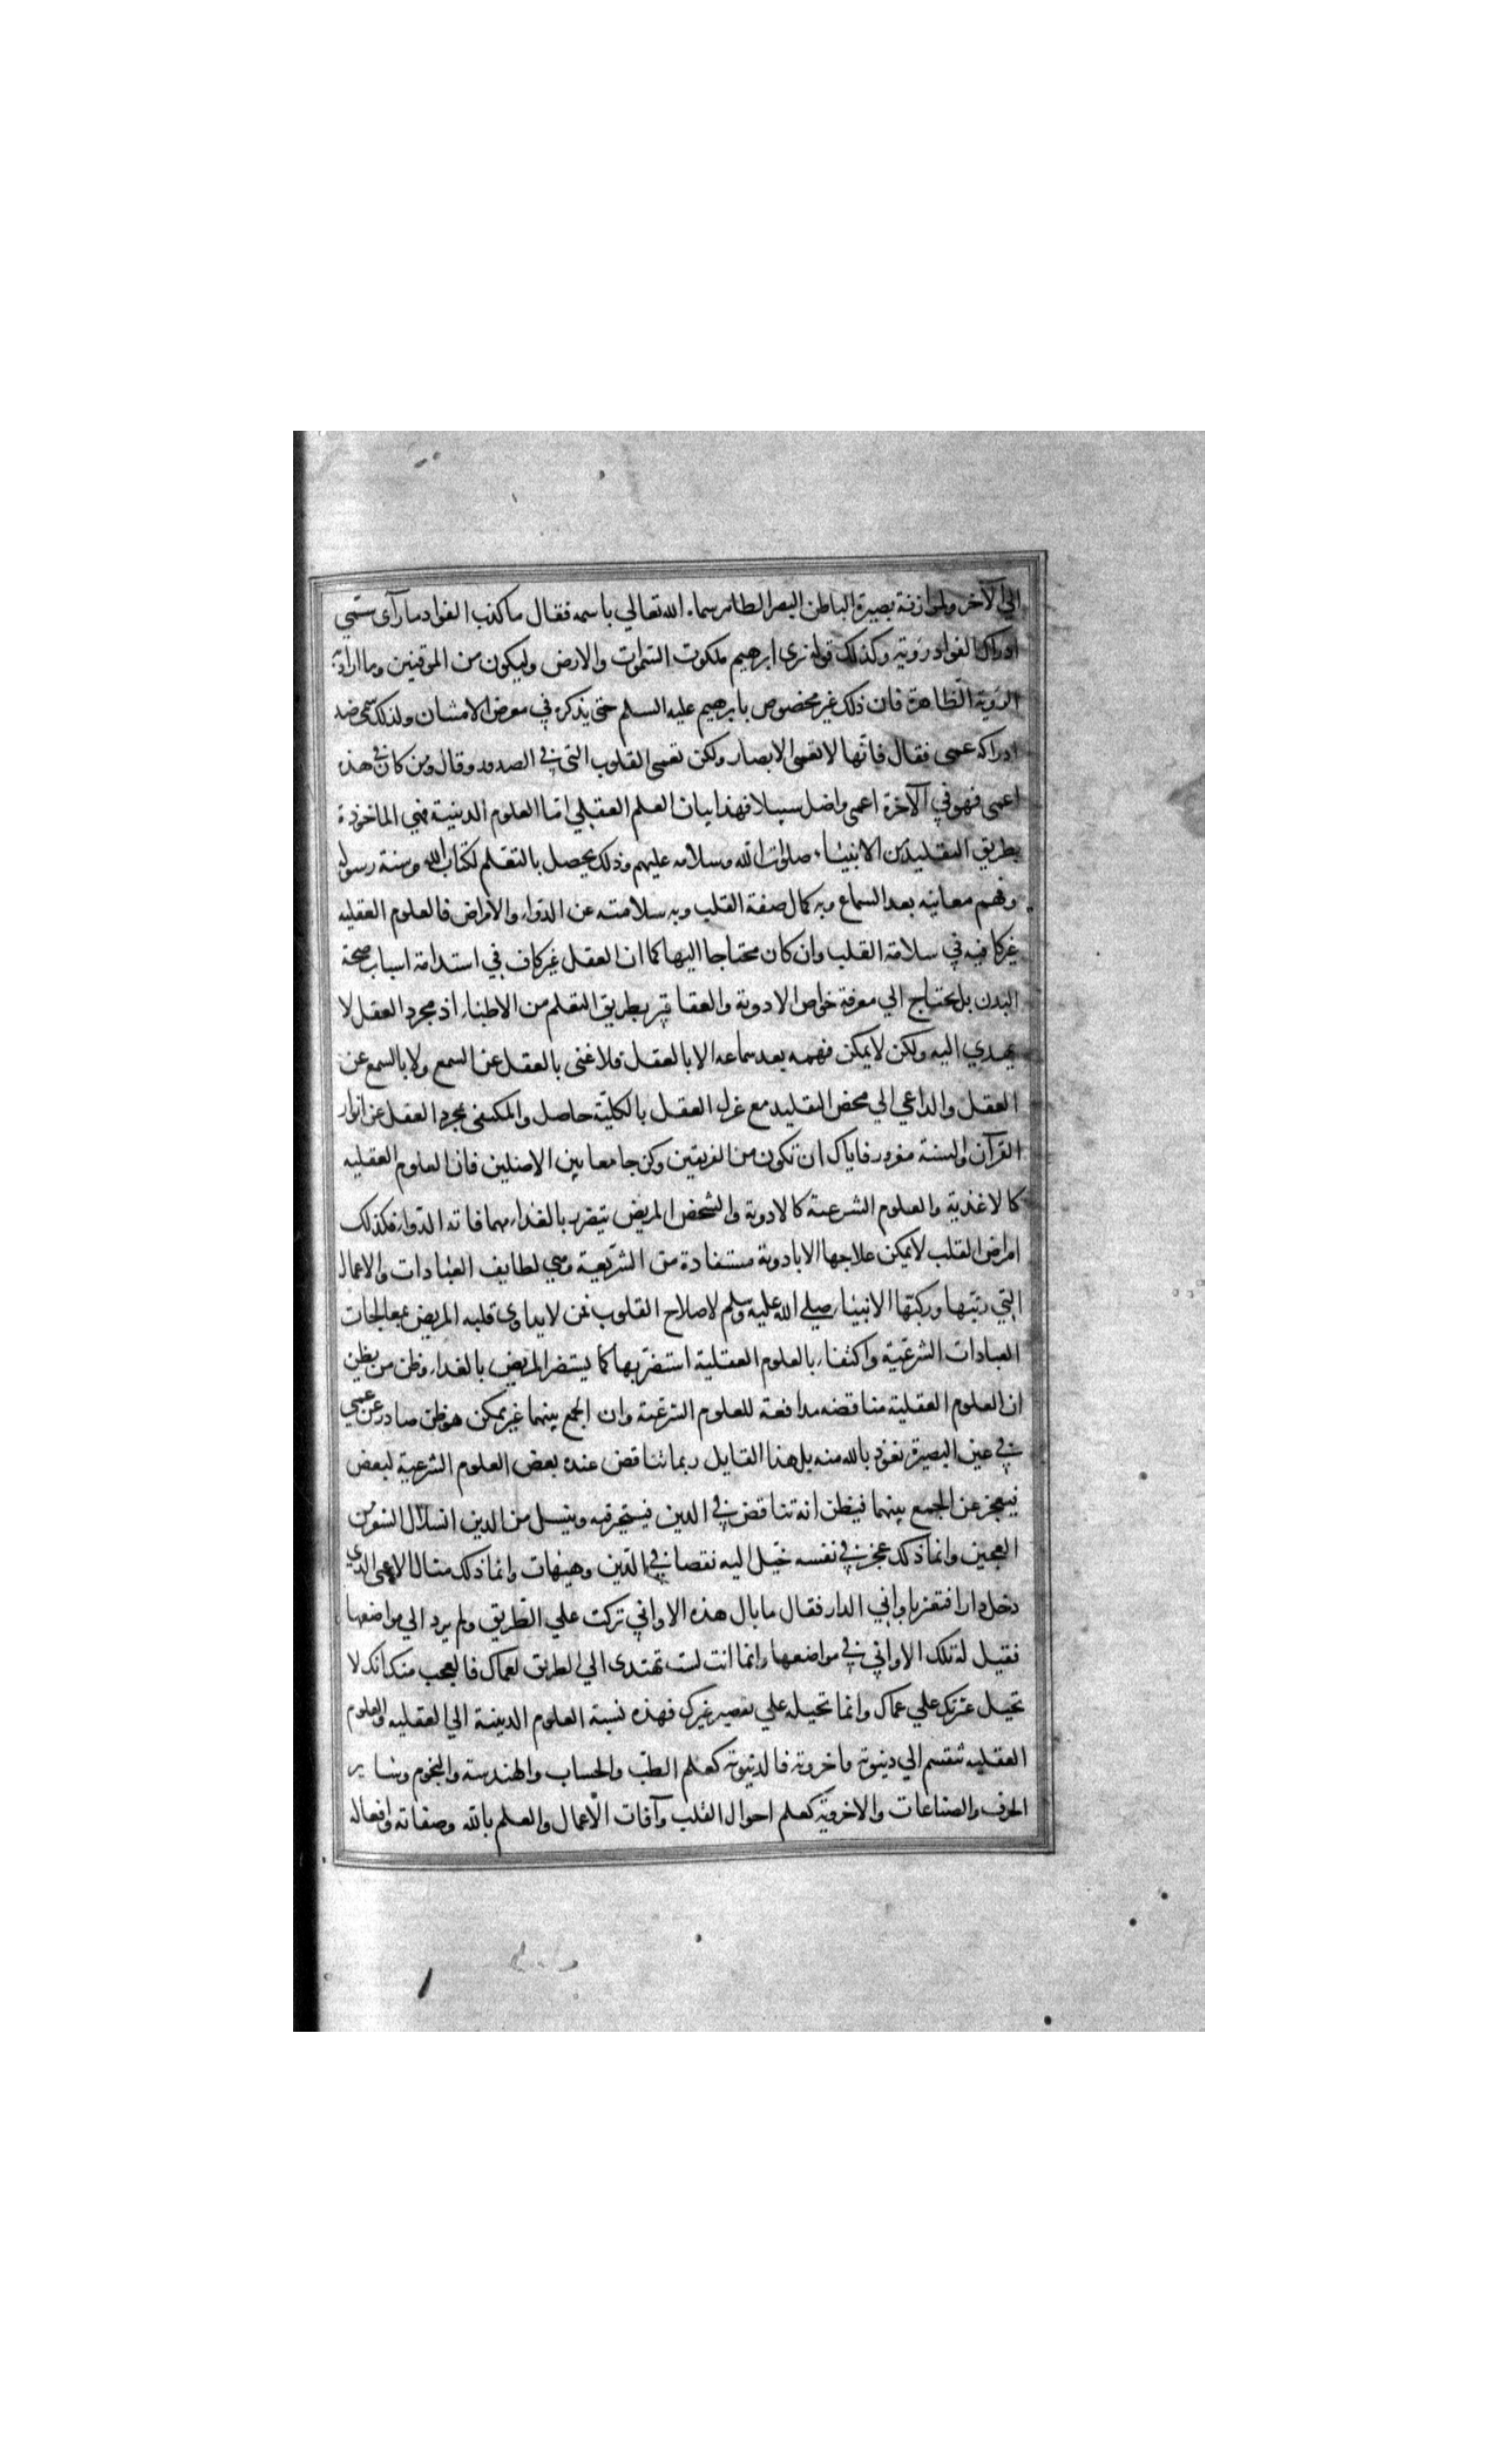 الي الآخر ولموازنة بصيرة الباطن البصر الظاهر سماه الله تعالي باسمه فقال ما كذب الفواد ما رآى سمي
ادراك الفواد روية وكذلك قوله نري ابرهيم ملكوت السموات والارض وليكون من الموقنين وما اراد به
الروية الظاهرة فان ذلك غير مخصوص بابرهيم عليه السلم حتى يذكره في معرض الامتنان ولذلك سمى ضد
ادراكه عمى فقال فانها لا تعمى الابصار ولكن تعمى القلوب التي في الصدور وقال ومن كان في هذه
اعمى فهو في الآخرة اعمى واضل سبيلا فهذا بيان العلم العقلي اما العلوم الدينية فهي الماخوذة
بطريق التقليد من الانبياء صلوات الله وسلامه عليهم وذلك يحصل بالتعلم لكتاب الله وسنة رسوله
وفهم معانيه بعد السماع وبه كمال صفة القلب وبه سلامته عن الدواء والامراض فالعلوم العقليه
غير كافيه في سلامة القلب وان كان محتاجا اليها كما ان العقل غير كاف في استدامة اسباب صحة
البدن بل يحتاج الي معرفة خواص الادوية والعقاقير بطريق التعلم من الاطباء اذ مجرد العقل لا
يهدي اليه ولكن لا يمكن فهمه بعد سماعه الا بالعقل فلا غنى بالعقل عن السمع ولا بالسمع عن
العقل والداعي الي محض التقليد مع عزل العقل بالكلية حاصل والمكتفى بمجرد العقل عن انوار
القرآن والسنة مغرور فاياك ان تكون من الفريقين وكن جامعا بين الاصلين فان العلوم العقليه
كالاغذية والعلوم الشرعية كالادوية والشخص المريض يتضرر بالغداء مهما فاته الدواء فكذلك
امراض القلب لا يمكن علاجها الا بادوية مستفادة من الشريعة وهي لطايف العبادات والاعمال
التي رتبها وركبتها الانبياء صلي الله عليه وسلم لاصلاح القلوب فمن لا يداوى قلبه المريض بمعالجات
العبادات الشرعية واكتفاء بالعلوم العقلية استضر بها كما يستضر المريض بالغداء وظن من يظن
ان العلوم العقلية مناقضه مدافعة للعلوم الشرعية وان الجمع بينهما غير ممكن هو ظن صادر عن عمي
في عين البصيرة نعوذ بالله منه بل هذا القايل ربما تناقض عنده بعض العلوم الشرعية لبعض
فيعجز عن الجمع بينهما فيظن انه تناقض في الدين فيتحير فيه وينسل من الدين انسلال الشعر من
العجين وانما ذلك عجز في نفسه خيل اليه نقصا في الدين وهيهات وانما ذلك مثال الاعمى الذي
دخل دارا فتعثر باواني الدار فقال ما بال هذه الاواني تركت علي الطريق ولم يرد الي مواضعها
فقيل له تلك الاواني في مواضعها وانما انت لست تهتدى الي الطريق لعماك فالعجب منك انك لا
تحيل عثرتك علي عماك وانما تحيله علي تقصير غيرك فهذه نسبة العلوم الدينية الي العقليه والعلوم
العقليه تنقسم الي دنيوية واخروية فالدنيوية كعلم الطب والحساب والهندسة والنجوم وساير
الحرف والصناعات والاخروية كعلم احوال القلب وآفات الاعمال والعلم بالله وصفاته وافعاله